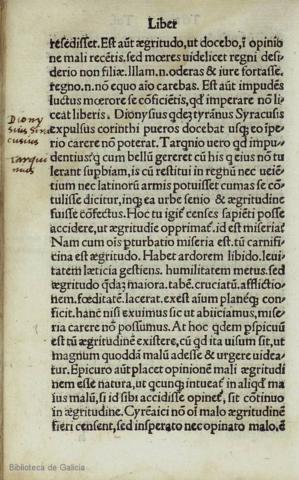 Liber
resedisset. Est aūt ægritudo, ut docebo, ī opinio
ne mali recētis. sed mœres uidelicet regni desi-
derio non filiæ. Illam. n. oderas & iure fortasse.
regno. n. nō equo aīo carebas. Est aūt impudēs
luctus mœrore se cōficiētis, qd imperare nō li-
ceat liberis. Dionysius qdez tyrānus Syracusis
expulsus corinthi pueros docebat usqz eo īpe-
rio carere nō poterat. Tarqnio uero qd impu-
dentius? q cum bellū gereret cū his q eius nō tu
lerant supbiam, is cū restitui in regnū nec ueiē
tium nec latinorū armis potuisset cumas se cō-
tulisse dicitur, inqz ea urbe senio & ægritudine
fuisse cōfectus. Hoc tu igit censes sapiēti posse
accidere, ut ægritudīe opprimat. id est miseria?
Nam cum oīs pturbatio miseria est. tū carnifi-
cina est ægritudo. Habet ardorem libido. leui-
tatem læticia gestiens. humilitatem metus. sed
ægritudo qdaz maiora. tabē. cruciatū. afflictio-
nem. fœditatē. lacerat. exest aīum planeqz con-
ficit. hanc nisi exuimus sic ut abiiciamus, mise-
ria carere nō possumus. At hoc qdem pspicuū
est tū ægritudinē existere, cū qd ita uisum sit, ut
magnum quoddā malū adesse & urgere uidea-
tur. Epicuro aūt placet opinionē mali ægritudi
nem esse natura, ut qcunqz intueat in aliqd ma
ius malū, si id sibi accidisse opinet, sit cōtinuo
in ægritudine. Cyrēaici nō oī malo ægritudinē
fieri censent, sed insperato nec opinato malo. ē
Diony
sius Sira
cusius
Tarqui
nius
Biblioteca de Galicia